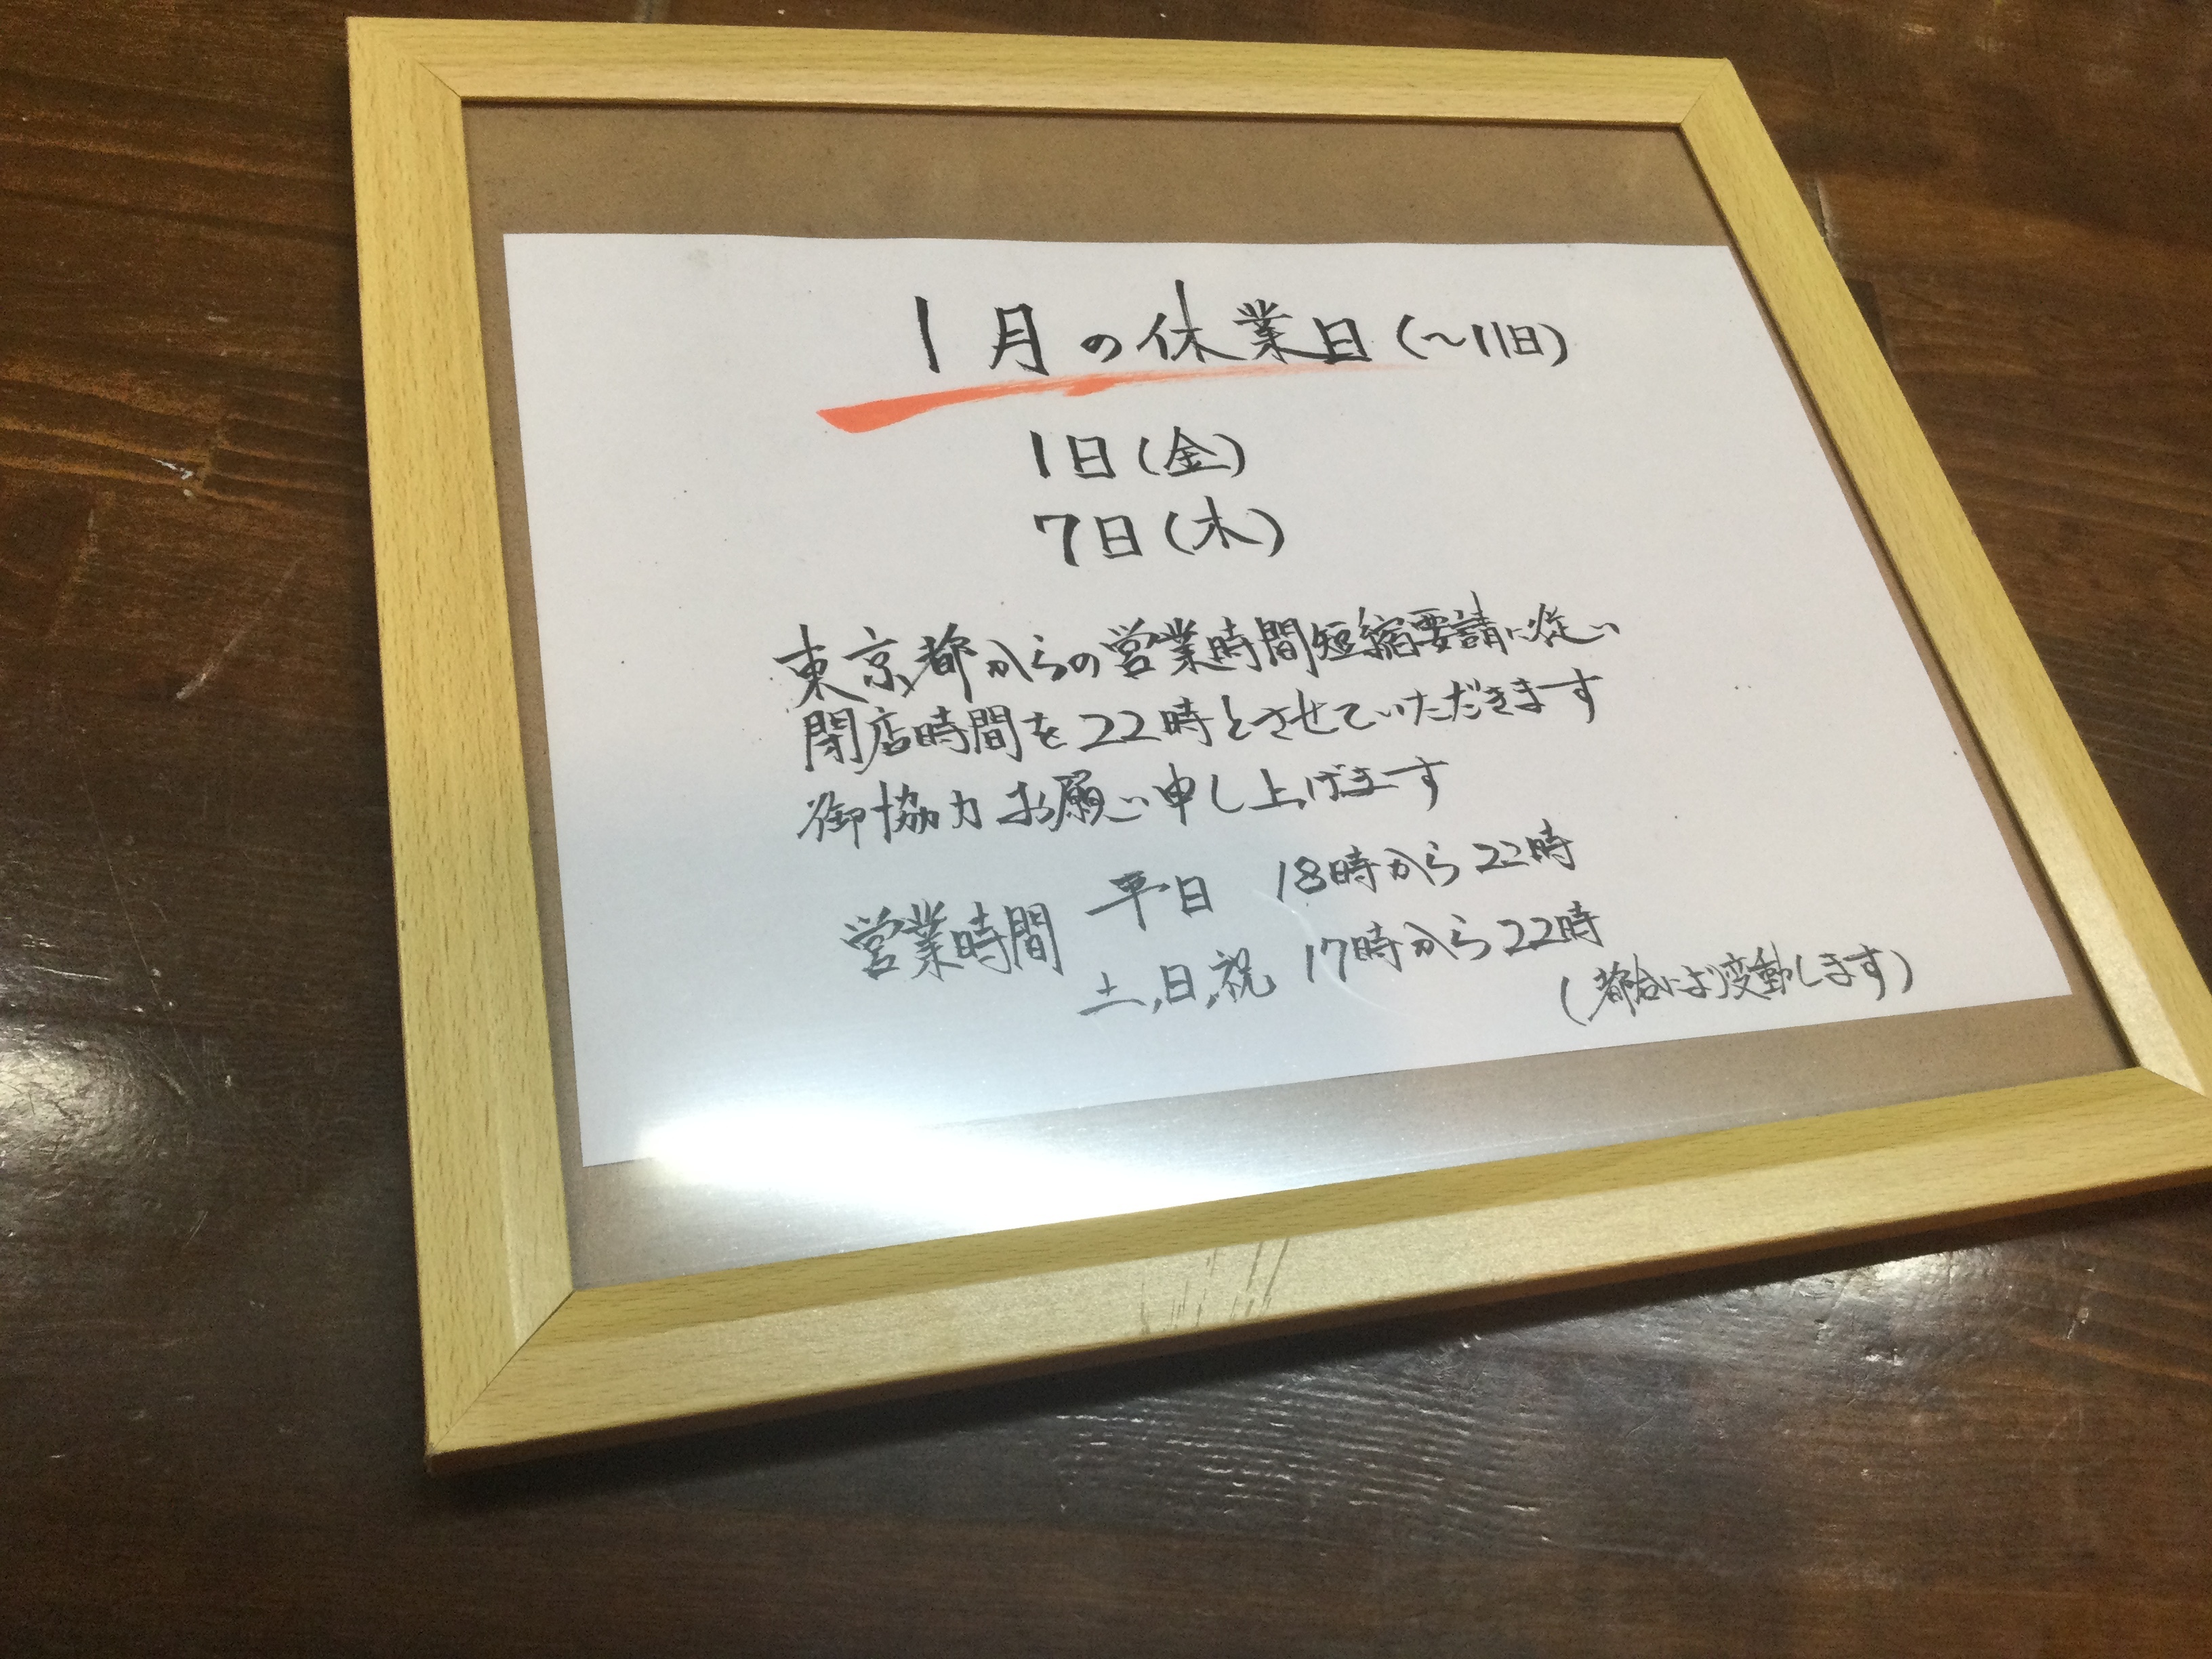 1月の休業日(～11日)
1日(金)
7日(木)
東京都からの営業時間短縮要請に従い
閉店時間を22時とさせていただきます
御協力お願い申し上げます
営業時間 平日 18時から22時
土,日,祝 17時から22時
(都合により変動します)